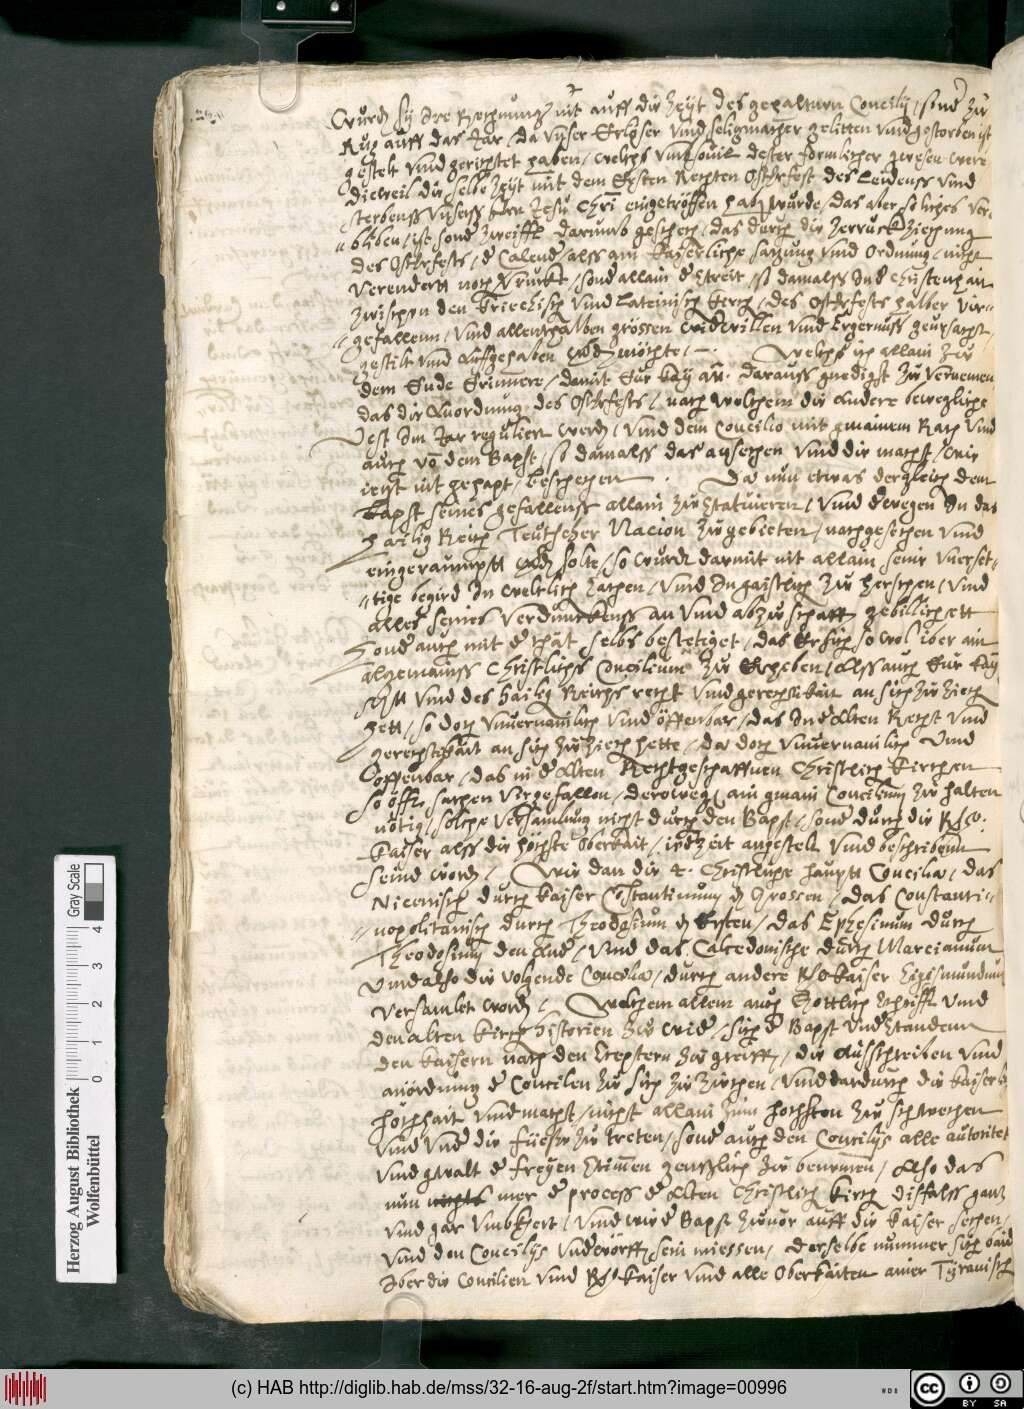 wurd sy Ire Rechnung nit auff die Zeyt des gehaltnen Concilij / sond zu
Ruck auff das Jar / da unser Erlöser und seligmacher gelitten und gestorben ist
gestelt und gerichtet haben / welchs umb souil dester formlicher gewesen were
dieweil die selbe Zeyt mit dem Ersten Rechten Osterfest des leidens und
sterbens unsers hern Jesu Chri eingetröffen hab wurde / das aber solches ver
bliben / ist sond Zweiffl darumb geschech / das durch die Zerruckziehung
des Osterfests / d Calend / alss ain Kaiserliche satzung und Ordnung / nicht
verendertt noch verruckt / sond allain d streit / so damalss Ind Christenhait
Zwischen den Kriechisch und Lateinisch Kirch / des Osterfests halber für
gefallenn / und allenthalben grossen widerwillen und Ergernuss geursacht
gestilt und auffgehaben werd möchte / Welchs ich allain zu
dem Ende Erinnere / damit Eur Kay: Mt: darauss gnedigst zu vernemen
das die Anordnung des Osterfests / nach welchem die andere bewegliche
Fest Im Jar reguliert werd / und dem Concilio mit gmainem Rath und
auch von dem Bapst / so damalss das ansechen und die macht / wie
ietzt nit gehapt / beschechen. Da nun etwas dergleich dem
Bapst seines gefallenss allain zu Statuieren / und derwegen In das
Hailig Reich Teutscher Nacion zu gebieten / nachgesechen und
eingeraumptt werd solte / so wurde darmit nit allain seine unerset
tige begird In weltlich sachen / und In gaistlich zu herschen / und
alles seines verdunckens an und abzuschaff gebillichett
Sond auch mit d that selbs bestetiget / das Er sich so wol über ain
algemainss Christlichs Concilium zu Erheben / alss auch Eur Kay:
Mtt und des Hailig Reichs recht und gerechtikait an sich zu ziech
hett / so doch unvernainlich und öffenbar / das Ind alten Recht und
gerechtikait an sich zu ziech hette / da doch unvernainlich und
Offenbar / das in d alten Rechtgeschaffnen Christlich Kirchen
so offt sachen fürgefallen / derowegen ain gmain Concilium zu halten
nötig / solche versamlung nicht durch den Bapst / sond durch die Rö:
Kaiser alss die höchste Oberkait / iederzeit angestelt und beschriben
seind word / Wie dan die 4. Christliche haupt Concilia / das
Nicenisch durch Kaiser Constantinum d Grossen / das Constanti
nopolitanisch durch Theodosium d Ersten / das Ephesinum durch
Theodosium den And / und das Calcedonische durch Marcianum
und also die volgende Concilia / durch andere Rö: Kaiser Sigismundum
versamlet word / Welchem allem auch Göttlich schrifft und
den alten Kirch historien zu wid / sich d Bapst understanden
den Kaisern nach den Sceptern zu greiff / die Ausschreiben und
anordnung d Concilien zu sich zu ziechen / und dardurch die Kaiserl
hochhait und macht / nicht allain zum höchsten zu schwechen
und und die füess zu tretten / sond auch den Concilijs alle autoritet
und gwalt d freyen Stimen gentzlich zu benemen / Also das
nun nichts mer d process d alten Christlich Kirch dissfalss gantz
und gar umbkhert / und wird Bapst zuuor auff die Kaiser sechen /
und den Concilijs underworffen sein miessen / derselbe nunmer sich baid
über die Concilien und Rö: Kaiser und alle Oberkaiten ainer Tyranisch
Herzog August Bibliothek
Wolfenbüttel
0 1 2 3 4
Gray Scale
(c) HAB http://diglib.hab.de/mss/32-16-aug-2f/start.htm?image=00996
WDB
cc BY SA